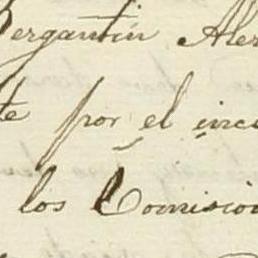 Bergantin Aler
te por el ince
los Comision